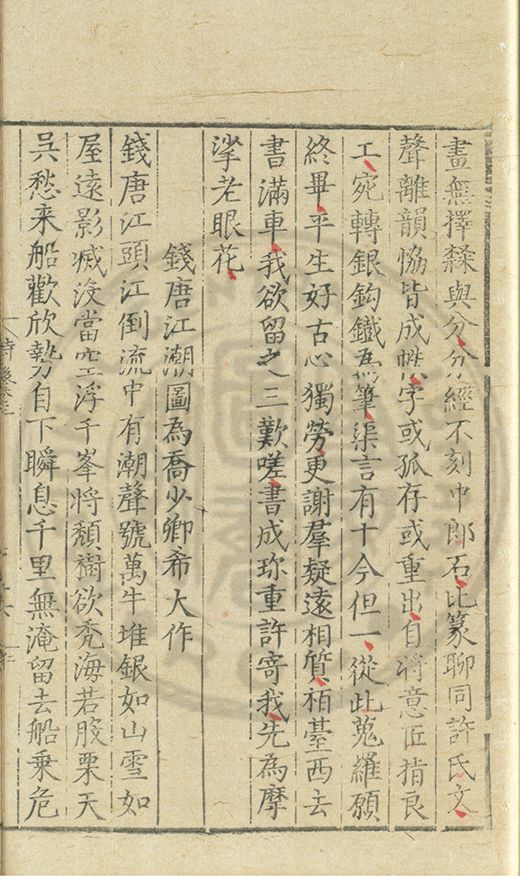 畫無擇隸與分分經不刻中郎石比篆聊同許氏文
聲離韻恊皆成帙字或孤存或重出自將意匠指良
工宛轉銀鈎鐵為筆渠言有十今但一從此蒐羅願
終畢平生好古心獨勞更謝羣疑遠相質栢臺西去
書滿車我欲留之三歎嗟書成珎重許寄我先為摩
挲老眼花
錢唐江潮圖為喬少卿希大作
錢唐江頭江倒流中有潮聲號萬牛堆銀如山雪如
屋遠影滅沒當空浮千峯將頹樹欲禿海若股栗天
吳愁来船歡欣勢自下瞬息千里無淹留去船乗危